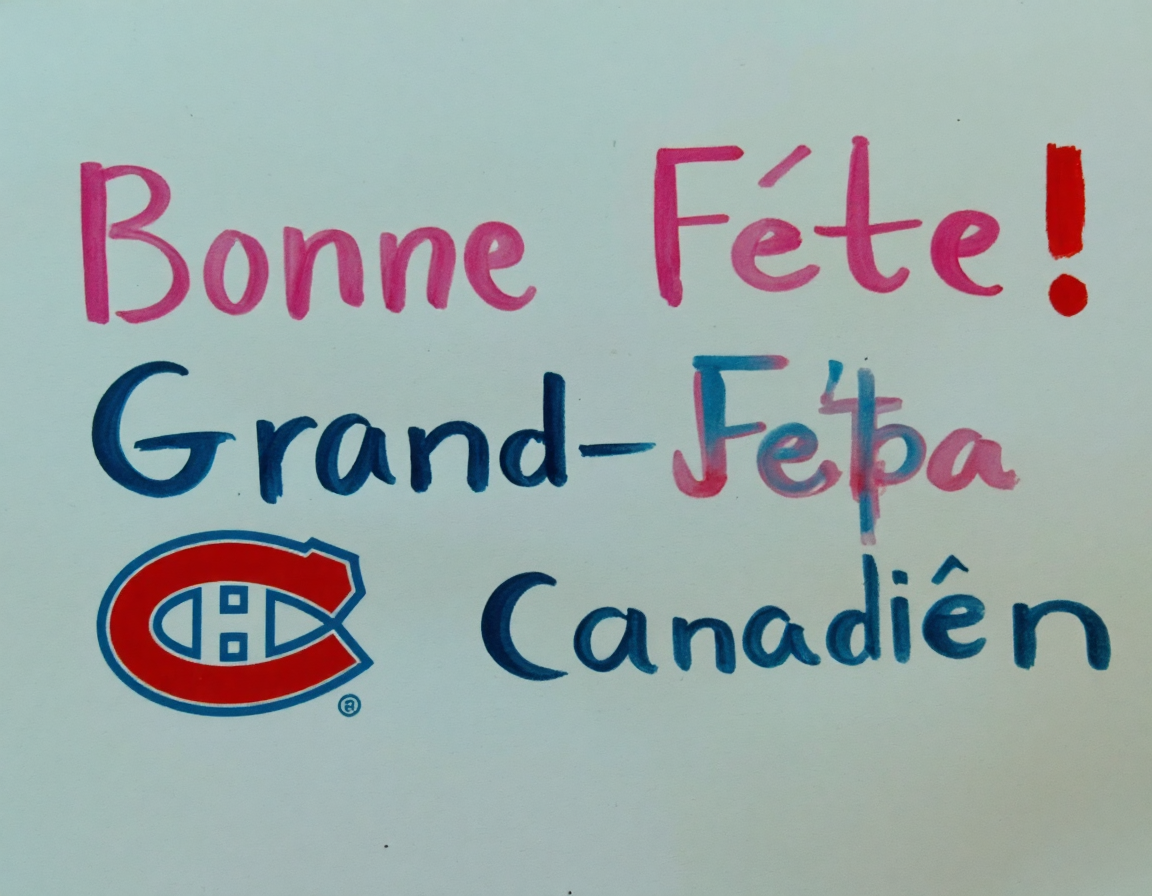 Bonne Féte!
Grand-
Canadiên